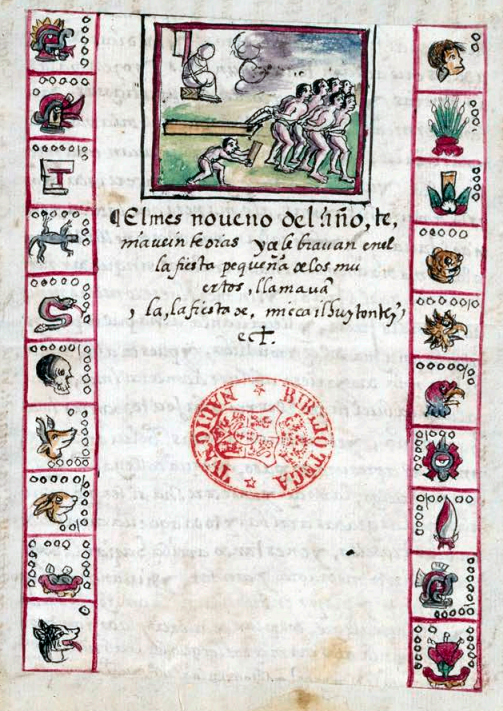 ¶ El mes noueno del año, te,
nia ueinte dias y çele brauan enel
la fiesta pequeña delos mu
ertos, llamauã
, la, la fiesta de, micca ilhuytontly,
ect.
BIBLIOTECA NACIONAL